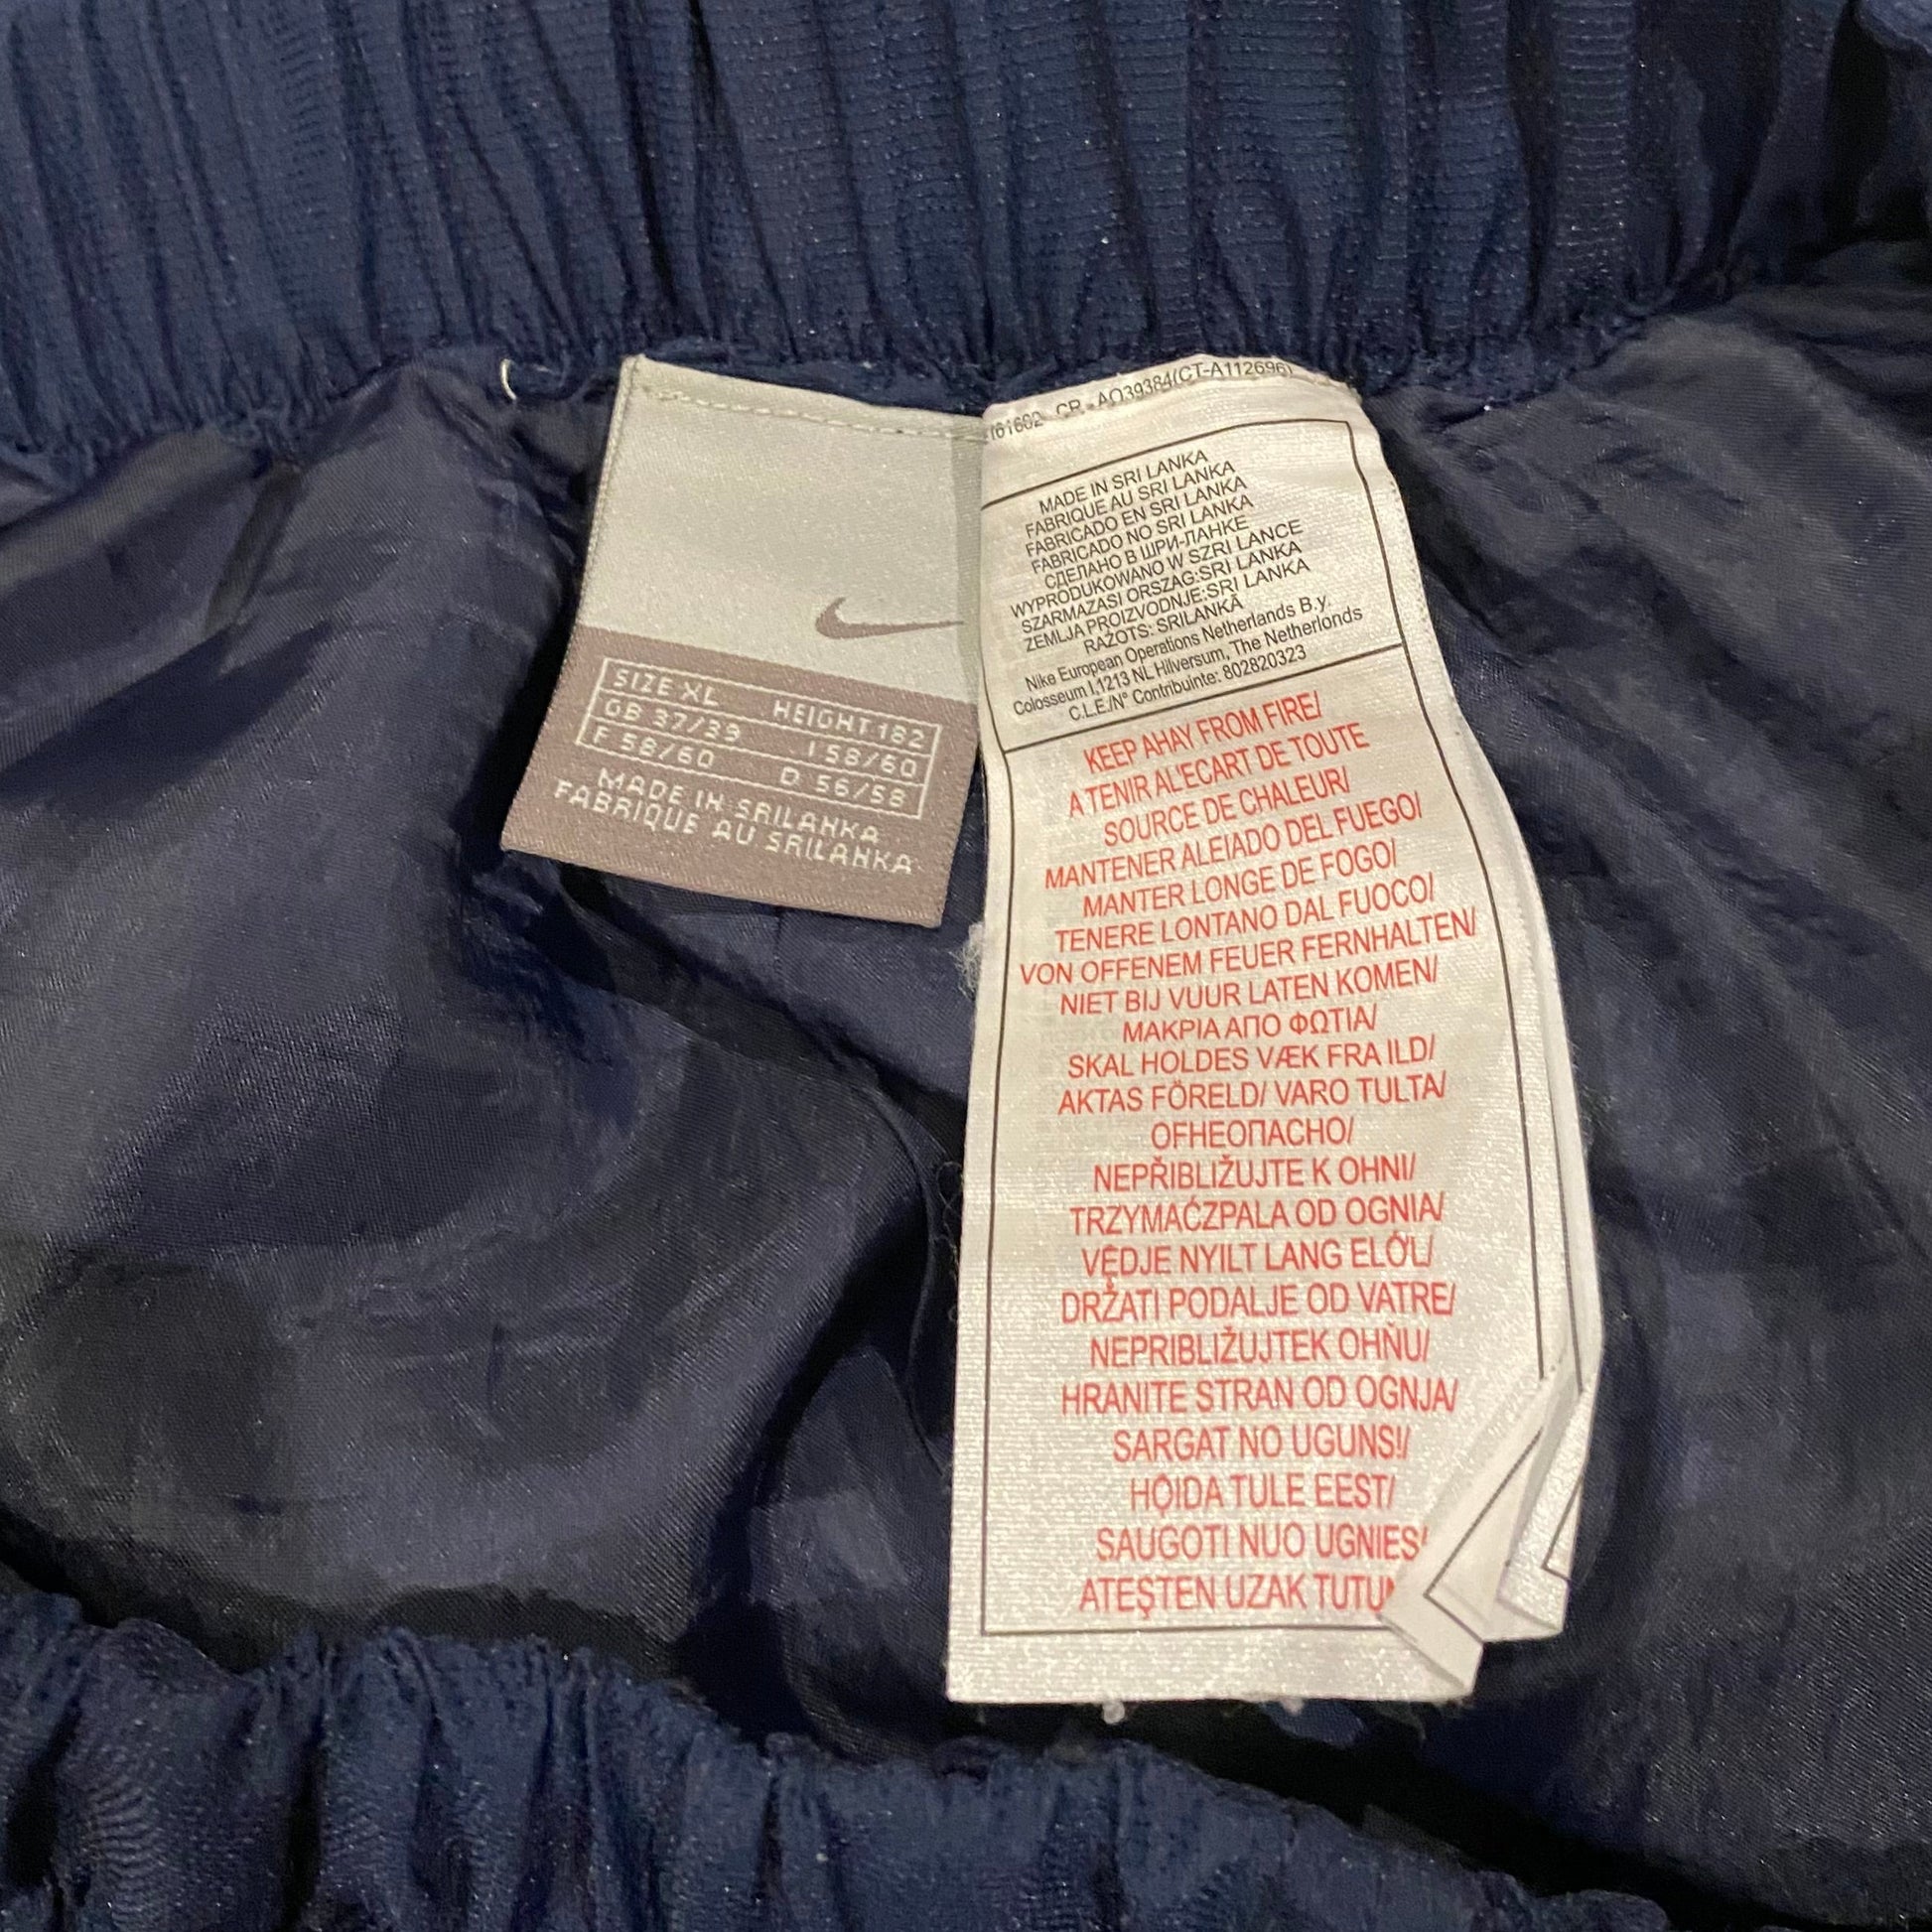 SIZE XL HEIGHT 182
GB 37/39 I 58/60
F 58/60 D 56/58
MADE IN SRILANKA
FABRIQUE AU SRILANKA
161602 CR - AO39384(CT-A112696)
MADE IN SRI LANKA
FABRIQUE AU SRI LANKA
FABRICADO EN SRI LANKA
FABRICADO NO SRI LANKA
СДЕЛАНО В ШРИ-ЛАНКЕ
WYPRODUKOWANO W SZRI LANCE
SZARMAZASI ORSZAG:SRI LANKA
ZEMLJA PROIZVODNJE:SRI LANKA
RAŽOTS: SRILANKĀ
Nike European Operations Netherlands B.y.
Colosseum I,1213 NL Hilversum, The Netherlonds
C.L.E./N° Contribuinte: 802820323
KEEP AHAY FROM FIRE/
A TENIR AL'ECART DE TOUTE
SOURCE DE CHALEUR/
MANTENER ALEIADO DEL FUEGO/
MANTER LONGE DE FOGO/
TENERE LONTANO DAL FUOCO/
VON OFFENEM FEUER FERNHALTEN/
NIET BIJ VUUR LATEN KOMEN/
ΜΑΚΡΙΑ ΑΠΟ ΦΩΤΙΑ/
SKAL HOLDES VÆK FRA ILD/
AKTAS FÖRELD/ VARO TULTA/
OFHEOПACHO/
NEPŘIBLIŽUJTE K OHNI/
TRZYMAĆZPALA OD OGNIA/
VĘDJE NYILT LANG ELŐL/
DRŽATI PODALJE OD VATRE/
NEPRIBLIŽUJTEK OHŇU/
HRANITE STRAN OD OGNJA/
SARGAT NO UGUNS!/
HỌIDA TULE EEST/
SAUGOTI NUO UGNIES/
ATEŞTEN UZAK